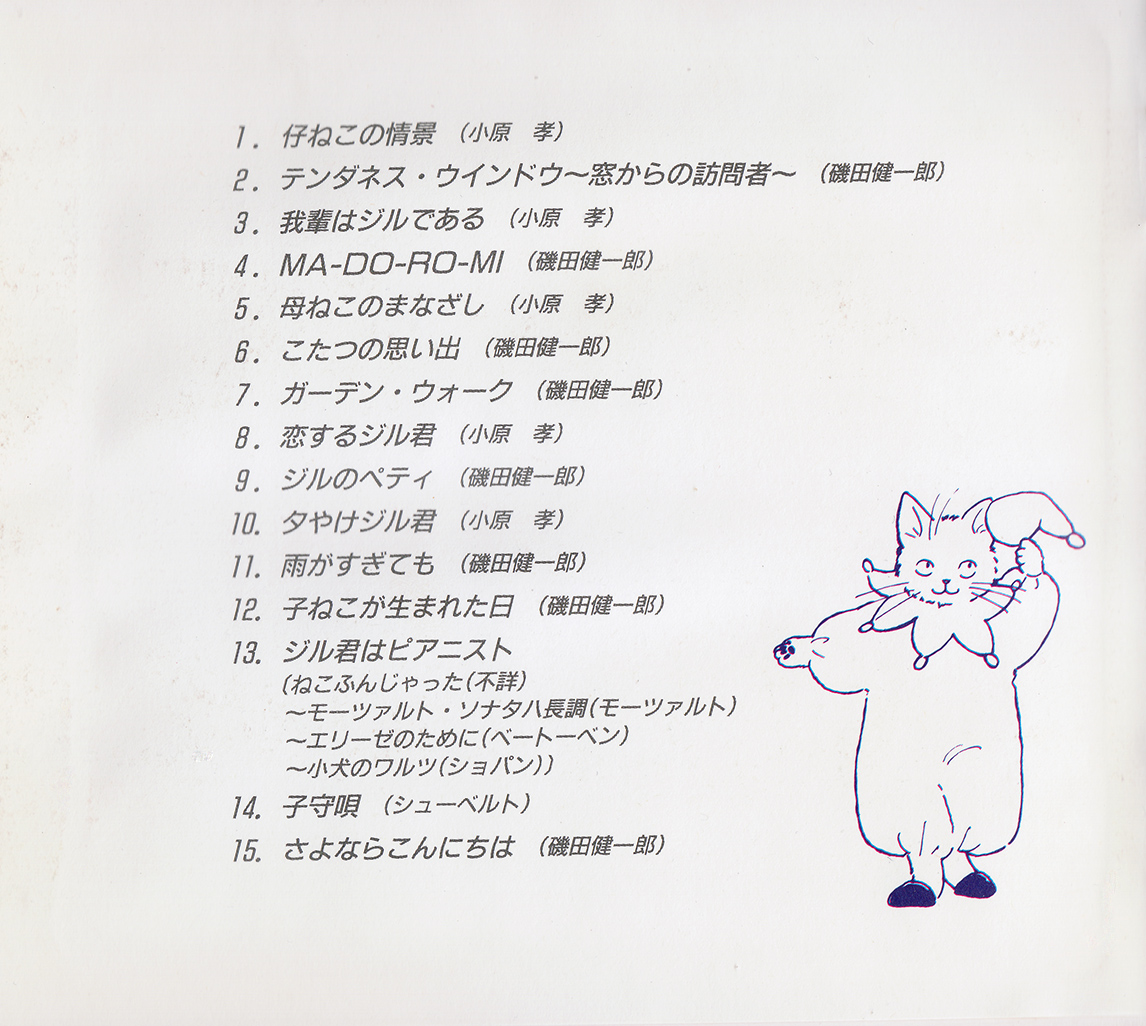 1. 仔ねこの情景 (小原　孝)
2. テンダネス・ウインドウ〜窓からの訪問者〜 (磯田健一郎)
3. 我輩はジルである (小原　孝)
4. MA-DO-RO-MI (磯田健一郎)
5. 母ねこのまなざし (小原　孝)
6. こたつの思い出 (磯田健一郎)
7. ガーデン・ウォーク (磯田健一郎)
8. 恋するジル君 (小原　孝)
9. ジルのペティ (磯田健一郎)
10. 夕やけジル君 (小原　孝)
11. 雨がすぎても (磯田健一郎)
12. 子ねこが生まれた日 (磯田健一郎)
13. ジル君はピアニスト
(ねこふんじゃった(不詳)
〜モーツァルト・ソナタハ長調(モーツァルト)
〜エリーゼのために(ベートーベン)
〜小犬のワルツ(ショパン))
14. 子守唄 (シューベルト)
15. さよならこんにちは (磯田健一郎)